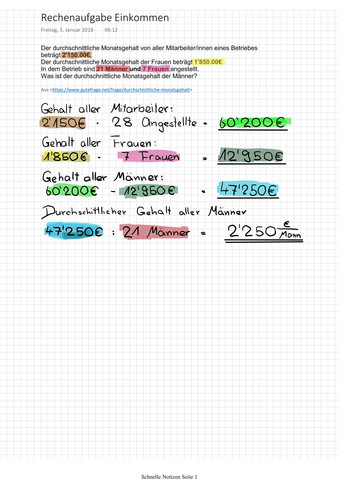 Rechenaufgabe Einkommen
Freitag, 5. Januar 2018 06:12
Der durchschnittliche Monatsgehalt von aller Mitarbeiter/innen eines Betriebes
beträgt 2'150.00€.
Der durchschnittliche Monatsgehalt der Frauen beträgt 1'850.00€
In dem Betrieb sind 21 Männer und 7 Frauen angestellt.
Was ist der durchschnittliche Monatsgehalt der Männer?
Aus <https://www.gutefrage.net/frage/durchschnittliche-monatsgehalt>
Gehalt aller Mitarbeiter:
2150€ · 28 Angestellte = 60'200€
Gehalt aller Frauen:
1'850€ · 7 Frauen = 12'950€
Gehalt aller Männer:
60'200€ - 12'950€ = 47'250€
Durchschittlicher Gehalt aller Männer
47'250€ : 21 Männer = 2'250 €/Mann
Schnelle Notizen Seite 1